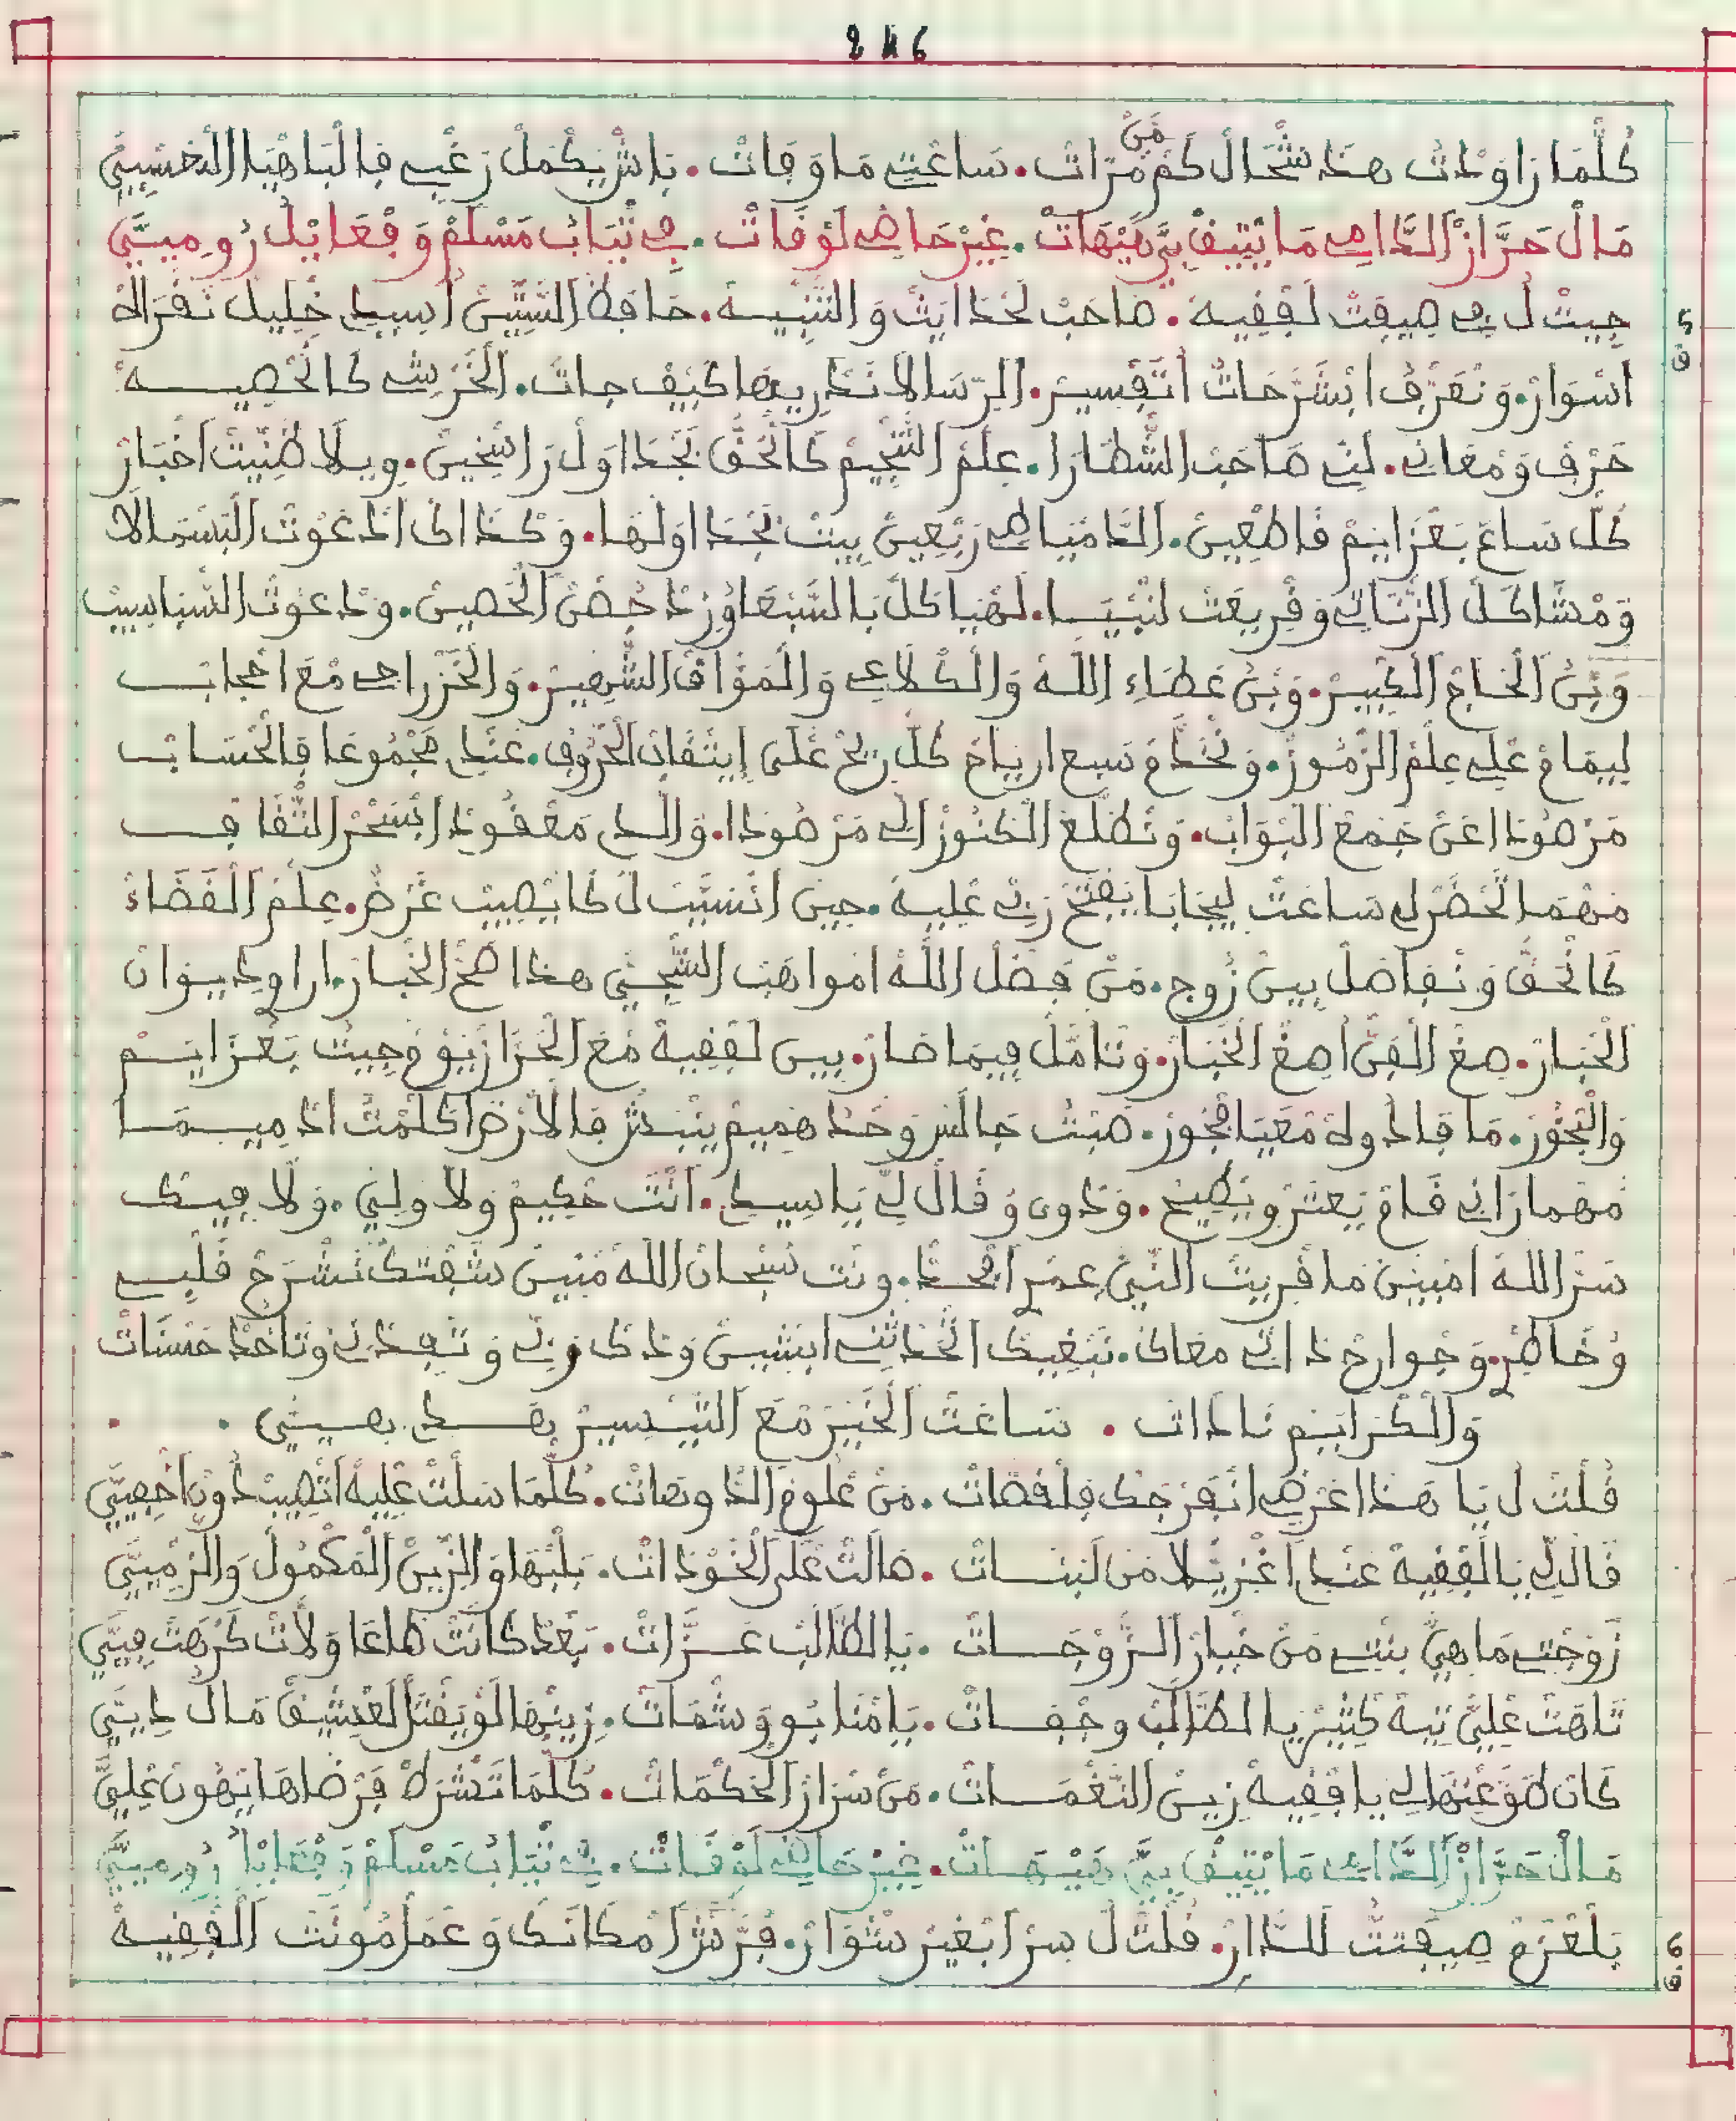 246
كُلّمَا زاوْدْت هذ شْحَالْ كَمْ مَنْ مَرّاتْ. سَاعْتِي مَاوْفَاتْ. بَاشْ يَكْمَلْ رَغْبِي فالْبَاهْيَا
مَالْ حَرَّازْ الدَّامِي مَا يْتِيقْ بِيَّ هَيْهَاتْ. غِيرْ حَاضِي لَوْقَاتْ. فِي ثْيَابْ مَسْلَمْ وَفْعَايْلُ رُومِيَّ
5
جِيتْ لُ فِي صِيفَتْ لَفْقِيه. صَاحَبْ لَحْدَايَثْ وَالتَّنْبِيه. حَافَظْ السّْتِّينْ أسِيدِي خْلِيلْ نَقْرَاهْ
اسْوَارْ. وَنْعَرَفْ ابْشَرْحَاتْ اتَّفْسِيرْ. الرّسَالا نَدْرِيهَا كَيْفْ جاتْ. الخَرْشِي كَانْحْصِيه
حَرْفْ وَمْعَانِي. لَنِّي صَاحَبْ الشّْطَارَا. عِلْمْ التَّنْجِيمْ كَانْحَقّْ بَجْدَاوْلُ رَاسْخِينْ. وِيلَا ظَنِّيتْ اخْبَارْ
كُلّْ سَاعْ بَعْزَايَمْ قَاطْعِينْ. الدَّامْيَاطِي رَبْعِينْ بِيتْ بَجْدَاوَلْهَا. وَكْذَاكْ ادَّعْوْتْ البَسْمَالَا
وَمْشَاكَلْ الزّْنَاتِي وَفْرِيعَتْ لَنْبِيَا. لَهْيَاكَلْ بَالسَّبْعَا وُزِدْ حُصْنْ الحْصِينْ. وَدْعَوْتْ السّْبَاسِبْ
وَبْنْ الْحَاجْ الكْبِيرْ. وَبْنْ عَطَاءِ اللَّهْ وَالْكْلَاعِي وَالْمَوَّاقْ الشّْهِيرْ. وَالْخَزْرَاجِي مْعَ احْجَابْ
لِيمَامْ عْلِي عِلْمْ الرّْمُوزْ. وَنْخَدَّمْ سَبْع ارْيَاحْ كُلّْ رِيحْ عْلَى إيتْقَانْ الْحْرُوفْ. عَنْدِي مَجْمُوعَا فَالْحْسَابْ
مَرْصُودَا عَنْ جَمْعْ البْوَابْ. وَنْطَلَّعْ الكْنُوزْ الِّي مَرْصُودَا. وَالِّي مَعْقُودْ ابْسَحْرْ الثّْقَافْ
مَهْمَا اتّْحَضْرْ لِي سَاعْتْ لِيجَابَا يَفْتَحْ رَبِّي عْلِيه. حِينْ انْسَبَّبْ لُ كَا يْصِيبْ غَرْضُ. عِلْمْ الْقَضَاءْ
كَانْحَقّْ وَنْفَاصَلْ بِينْ زُوج. مَنْ فَضْلْ اللَّهْ امْوَاهَبْ السّْجْنِي هَذَا صَحّْ الخْبَارْ. اراوِي دِيوَانْ
الخْبَارْ. صِغْ الْفَنّْ أصِغْ الخْبَارْ. وَتَامَّلْ فِيمَا صَارْ. بِينْ لَفْقِيهْ مْعَ الْحَرَّازْ يُومْ جِيتْ بَعْزَايَمْ
وَالْبْخُورْ. مَا فَادُ وَلَا مْعَيَا فْجُورْ. صَبْتُ جَالَسْ وَحْدُ هْمِيمْ يَنْبَشْ فَالَارْضْ اكَلَّمْتُ ادْمِيمَا
مَهْمَا رَانِي قَامْ يَعْتَرْ وِيطِيحْ. وَدْوَى وْ قَالْ لِي يَاسِيدِي. انْتَ حْكِيمْ وَلَا وَلِيّْ. وَلَا فِيكْ
سَرّْ اللَّهْ امْنِينْ مَا قْرِيتْ النّيّ عِمَّرْ افْحَدّْ. وَنْتَ سُبْحَانْ اللَّهْ مْنِينْ شَفْتَكْ نَشْرَحْ قَلْبِي
وْخَاطْرِي. وَجْوَارَحْ ذَاتِي مْعَاكْ. نَبْغِيكْ اتّْحَدَّثْنِي ابْشِينْ وَدْكْ رَبِّي وَتْفِيدْنِي وْتَاخَدْ حَسَنَاتْ
وَالْكْرَايَمْ تَادَاتْ. سَاعْتْ الْخِيرْ مْعَ التِّيسِيرْ
قُلْتْ لُ يَا هَذَا غَرْضِي انْفَرْجَكْ فَلْقْصَاتْ. مَنْ عْلُومْ الذَّاوْهَاتْ. كُلّْمَا سَلْتْ عْلِيهْ اتْصِيبْ دُونْ اخْفِيَّ
قَالْ لِي يَا الْفْقِيهْ عَنْدِي اغْزِيّلَا مَنْ لَبْنَاتْ. صَالَتْ عْلَى الْخَوْدَاتْ. بَلْبْهَا وَالزِّينْ الْمَكْمُولْ وَالزِّمِيَّ
زَوْجْتِي مَا هِيَّ بَنْتِي مَنْ خْيَارْ الزَّوْجَاتْ. يَا الطَّالَبْ عَزَّاتْ. بَعْدْ كَانَتْ طَاعَا وَلَّاتْ كَرْهَتْ فِيَّ
تَاهَتْ عْلِيَّ تِيهْ كْثِيرْ يَا الطَّالَبْ وَجْفَاتْ. يَامْنَا بُو وَشْمَاتْ. زِينْهَا لَوْ يَفْتَلْ لَعْشِيقْ مَالُ دِيَّ
كَانْ طَوَّعْتْهَا لِي يَا فْقِيهْ زِينْ النَّغْمَاتْ. مَنْ سْرَارْ الْحَكْمَاتْ. كُلّْمَا تَشْرَهْ فَرْضَاهَا يْهُونْ عْلِيَّ
مَالْ حَرَّازْ الدَّامِي مَا يْتِيقْ بِيَّ هَيْهَاتْ. غِيرْ حَاضِي لَوْقَاتْ. فِي ثْيَابْ مَسْلَمْ وَفْعَايْلُ رُومِيَّ
6
بَلْعْزَمْ صِيفَتْتُ لَلدَّارْ. قُلْتْ لُ سِرْ ابْغِيرْ شْوَارْ. فَرَّشْ امْكَانَكْ وَعْمَلْ مُونَتْ الْفْقِيهْ